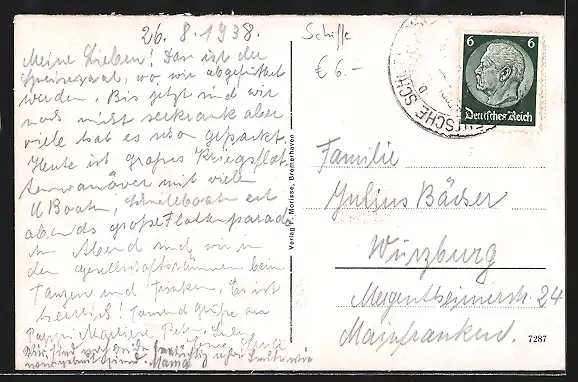 26. 8. 1938.
Meine Lieben! Das ist der
Speisesaal, wo wir abgefüttert
werden. Bis jetzt sind wir
noch nicht seekrank aber
viele hat es schon gepackt.
Heute ist großes Kriegsflot-
tenmanöver mit vielen
U Booten, Schnellbooten erst
abends große Flottenparade
Am Abend sind wir in
den Gesellschaftsräumen beim
Tanzen und Trinken. Es ist
herrlich! Tausend Grüße an
Pappi Peter
Wir sind
Mama
Schiffe
€ 6.-
DEUTSCHE SCH
6 6
Deutsches Reich
Verlag F. Morisse, Bremerhaven
Familie
Julius Bäcker
Würzburg
Mergentheimerstr. 24
Mainfranken.
7287